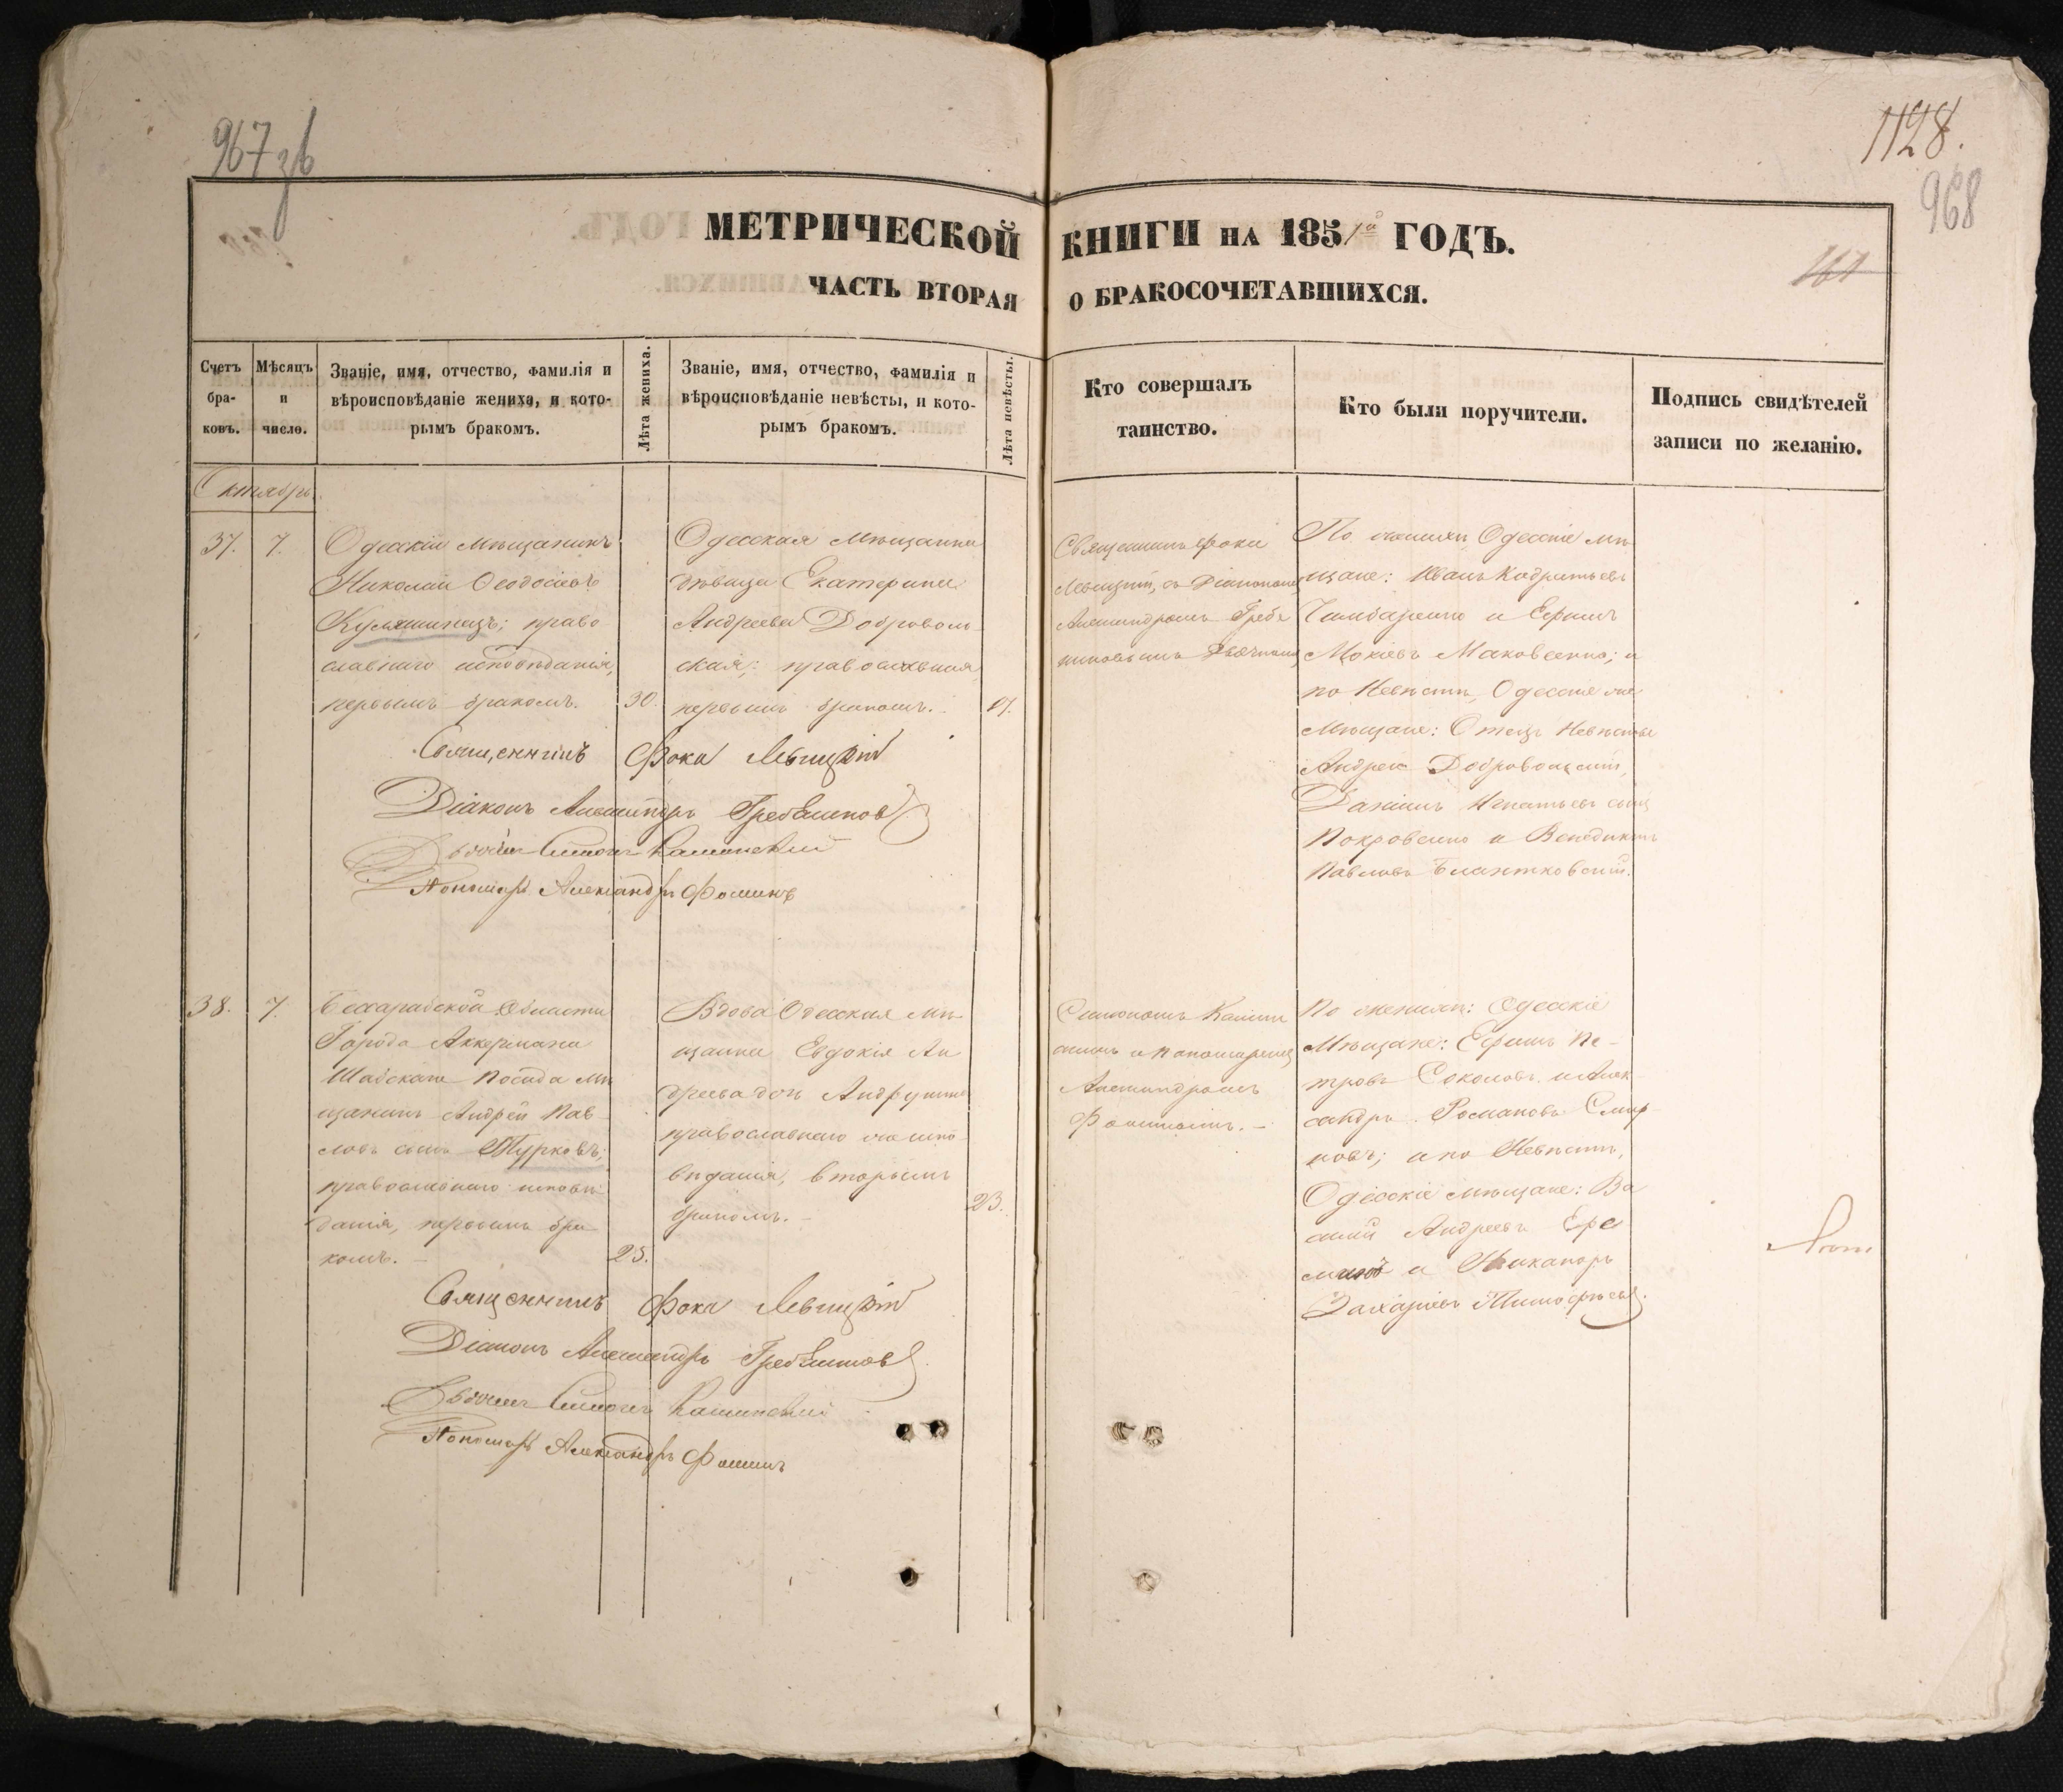 967 зв
1128.
968
МЕТРИЧЕСКОЙ КНИГИ НА 1851го ГОДЪ.
ЧАСТЬ ВТОРАЯ О БРАКОСОЧЕТАВШИХСЯ.
Счетъ
бра-
ковъ.
Мѣсяцъ
и
число.
Званіе, имя, отчество, фамилія и
вѣроисповѣданіе жениха, и кото-
рымъ бракомъ.
Лѣта жениха.
Званіе, имя, отчество, фамилія и
вѣроисповѣданіе невѣсты, и кото-
рымъ бракомъ.
Лѣта невѣсты.
Кто совершалъ
таинство.
Кто были поручители.
Подпись свидѣтелей
записи по желанію.
Октябрь.
37.
7.
Одесскій Мѣщанинъ
Николай Ѳеодосіевъ
православнаго исповѣданія,
первымъ бракомъ.
30.
Одесская Мѣщанка
дѣвица Екатерина
Андреева Доброволь-
ская; православная
первымъ бракомъ.
Священникъ Фока
Левицкій, съ Діакономъ
Александромъ Гребе
По женихѣ Одесскіе мѣ
щане: Иванъ
и Ефимъ
Мокіевъ Маковенко; и
по Невѣстѣ, Одесскіе же
Мѣщане: Отецъ Невѣсты
Андрей Добровольскій,
Даніилъ Игнатьевъ сынъ
и Венедиктъ
Павловъ
Священникъ Фока Левицкій
Діаконъ Александръ
Дьячекъ Симонъ
Пономарь Александръ Фоминъ
38.
7.
Бессарабской Области
Города Аккермана
Шабскаго Посада мѣ
щанинъ Андрей Пав-
ловъ сынъ Турковъ;
православнаго исповѣ
данія, первымъ бра
комъ. –
25.
Вдова Одесская мѣ-
щанка Евдокія Ан
дреева доч
православнаго же испо-
вѣданія, вторымъ
бракомъ. –
23.
Симономъ
и Пономаремъ
Александромъ
Фоминымъ. –
По женихѣ: Одесскіе
Мѣщане: Ефимъ Пе-
тровъ Соколовъ и Алек
сандръ Романовъ Смир
новъ; а по Невѣстѣ,
Одесскіе мѣщане: Ва
силій Андреевъ Ере
и Никаноръ
Захаріевъ Тимофѣевъ.
Священникъ Фока Левицкій
Діаконъ Александръ
Дьячекъ Симонъ
Пономарь Александръ Фоминъ